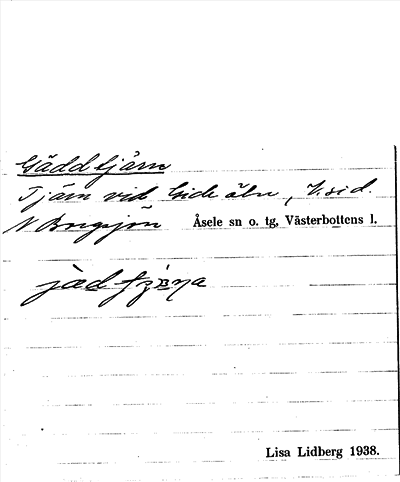 Gäddtjärn
Tjärn vid Gide älv, V. sid.
N Borgsjön Åsele sn o. tg, Västerbottens l.
Lisa Lidberg 1938.